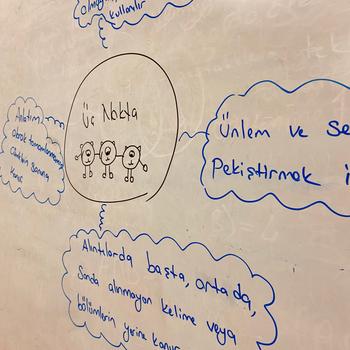 kullanılır
Üç Nokta
Anlatım
olarak tamamlanmamış
Cümlenin sonuna
konur
Ünlem ve se
Pekiştirmek i
Alıntılarda başta, ortada,
Sonda alınmayan kelime veya
bölümlerin yerine konur